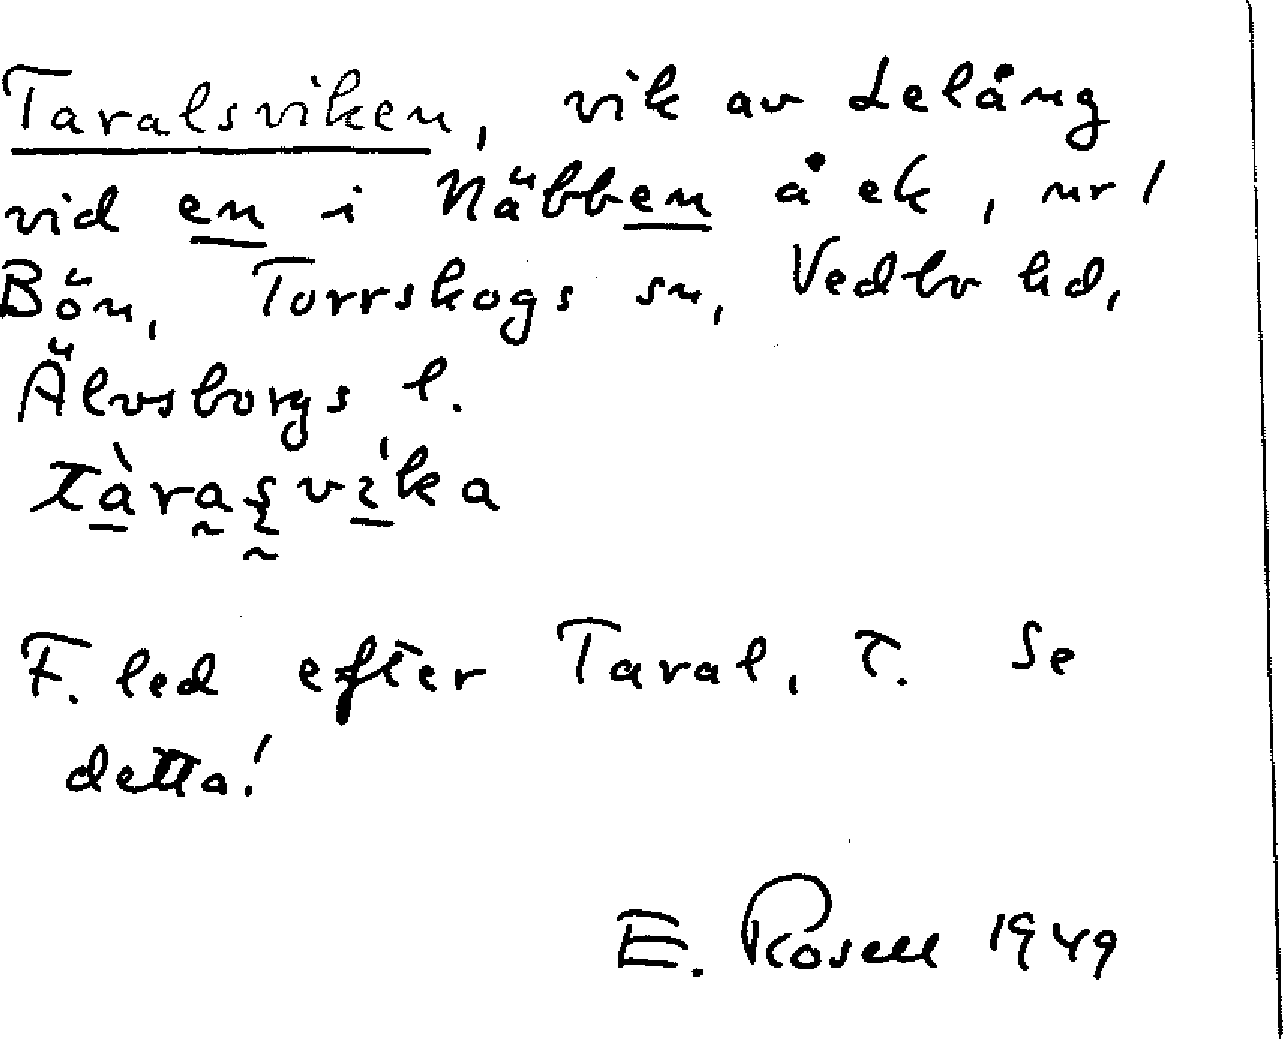 Taralsviken, vik av Lelång
vid en i Näbben å ek, nr 1
Bön, Torrskogs sn, Vedbo hd,
Älvsborgs l.
tàrasvi'ka
F. led efter Taral, t. Se
detta!
E. Rosell 1949